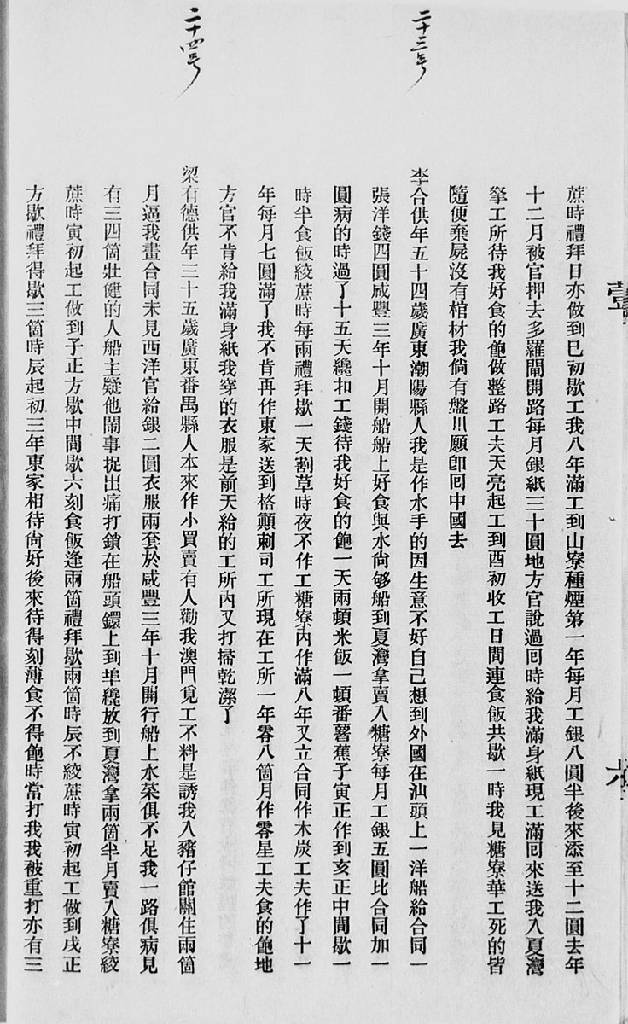 蔗時禮拜日亦做到巳初歇工我八年滿工到山寮種煙第一年每月工銀八圓半後來添至十二圓去年
十二月被官押去多羅閘開路每月銀紙三十圓地方官說過回時給我滿身紙現工滿回來送我入夏灣
拏工所待我好食的飽做整路工夫天亮起工到酉初收工日間連食飯共歇一時我見糖寮華工死的皆
隨便棄屍沒有棺材我倘有盤川願卽回中國去
二十三号
李合供年五十四歲廣東潮陽縣人我是作水手的因生意不好自己想到外國在汕頭上一洋船給合同一
張洋錢四圓咸豐三年十月開船船上好食與水尙够船到夏灣拿賣入糖寮每月工銀五圓比合同加一
圓病的時過了十五天纔扣工錢待我好食的飽一天兩頓米飯一頓番薯蕉子寅正作到亥正中間歇一
時半食飯絞蔗時每兩禮拜歇一天割草時夜不作工糖寮內作滿八年又立合同作木炭工夫作了十一
年每月七圓滿了我不肯再作東家送到格顛刺司工所現在工所一年零八箇月作零星工夫食的飽地
方官不肯給我滿身紙我穿的衣服是前天給的工所內又打掃乾潔了
二十四号
梁有德供年三十五歲廣東番禺縣人本來作小買賣有人勸我澳門覓工不料是誘我入豬仔館關住兩箇
月逼我畫合同未見西洋官給銀二圓衣服兩套於咸豐三年十月開行船上水菜俱不足我一路俱病見
有三四箇壯健的人船主疑他鬧事捉出痛打鎖在船頭鐶上到埠纔放到夏灣拿兩箇半月賣入糖寮絞
蔗時寅初起工做到子正方歇中間歇六刻食飯逢兩箇禮拜歇兩箇時辰不絞蔗時寅初起工做到戌正
方歇禮拜得歇三箇時辰起初三年東家相待尙好後來待得刻薄食不得飽時當打我我被重打亦有三